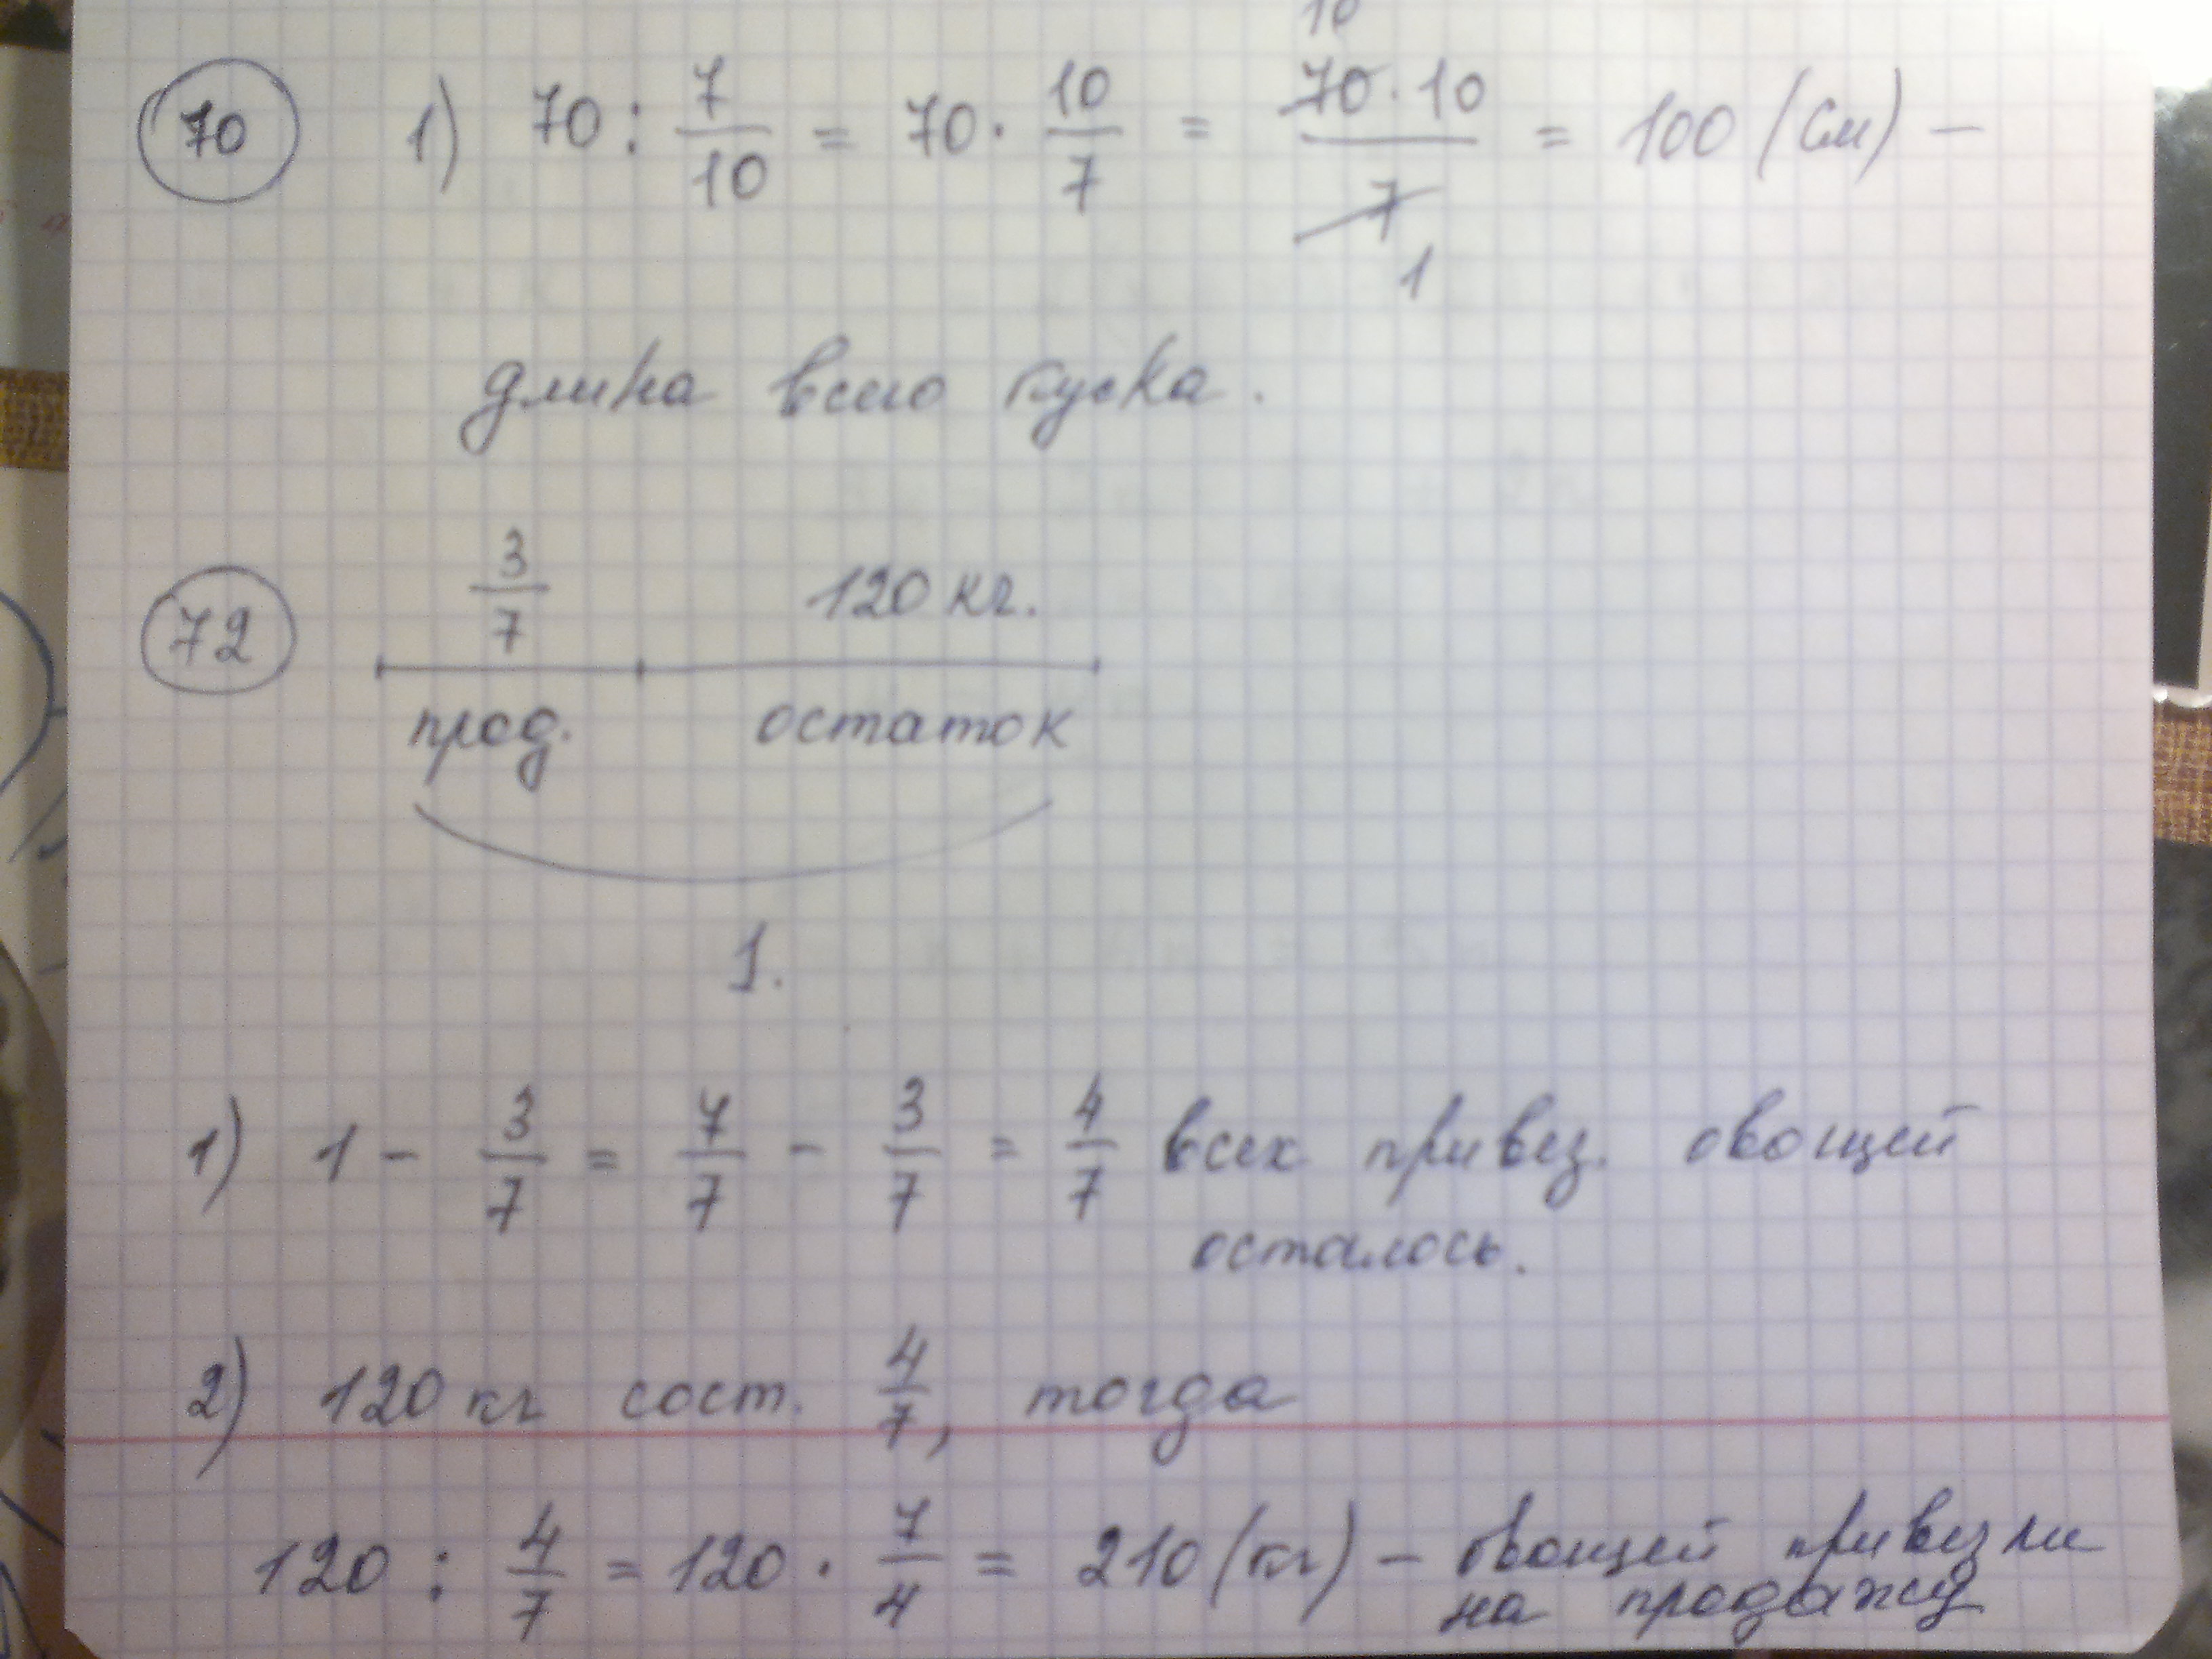 70 1) 70 : 7/10 = 70 · 10/7 = 70·10/7 = 100 (см) –
10
1
длина всего куска.
72 3/7 120 кг.
прод. остаток
1.
1) 1 - 3/7 = 7/7 - 3/7 = 4/7 всех привез. овощей
осталось.
2) 120 кг сост. 4/7, тогда
120 : 4/7 = 120 · 7/4 = 210 (кг) – овощей привезли
на продажу